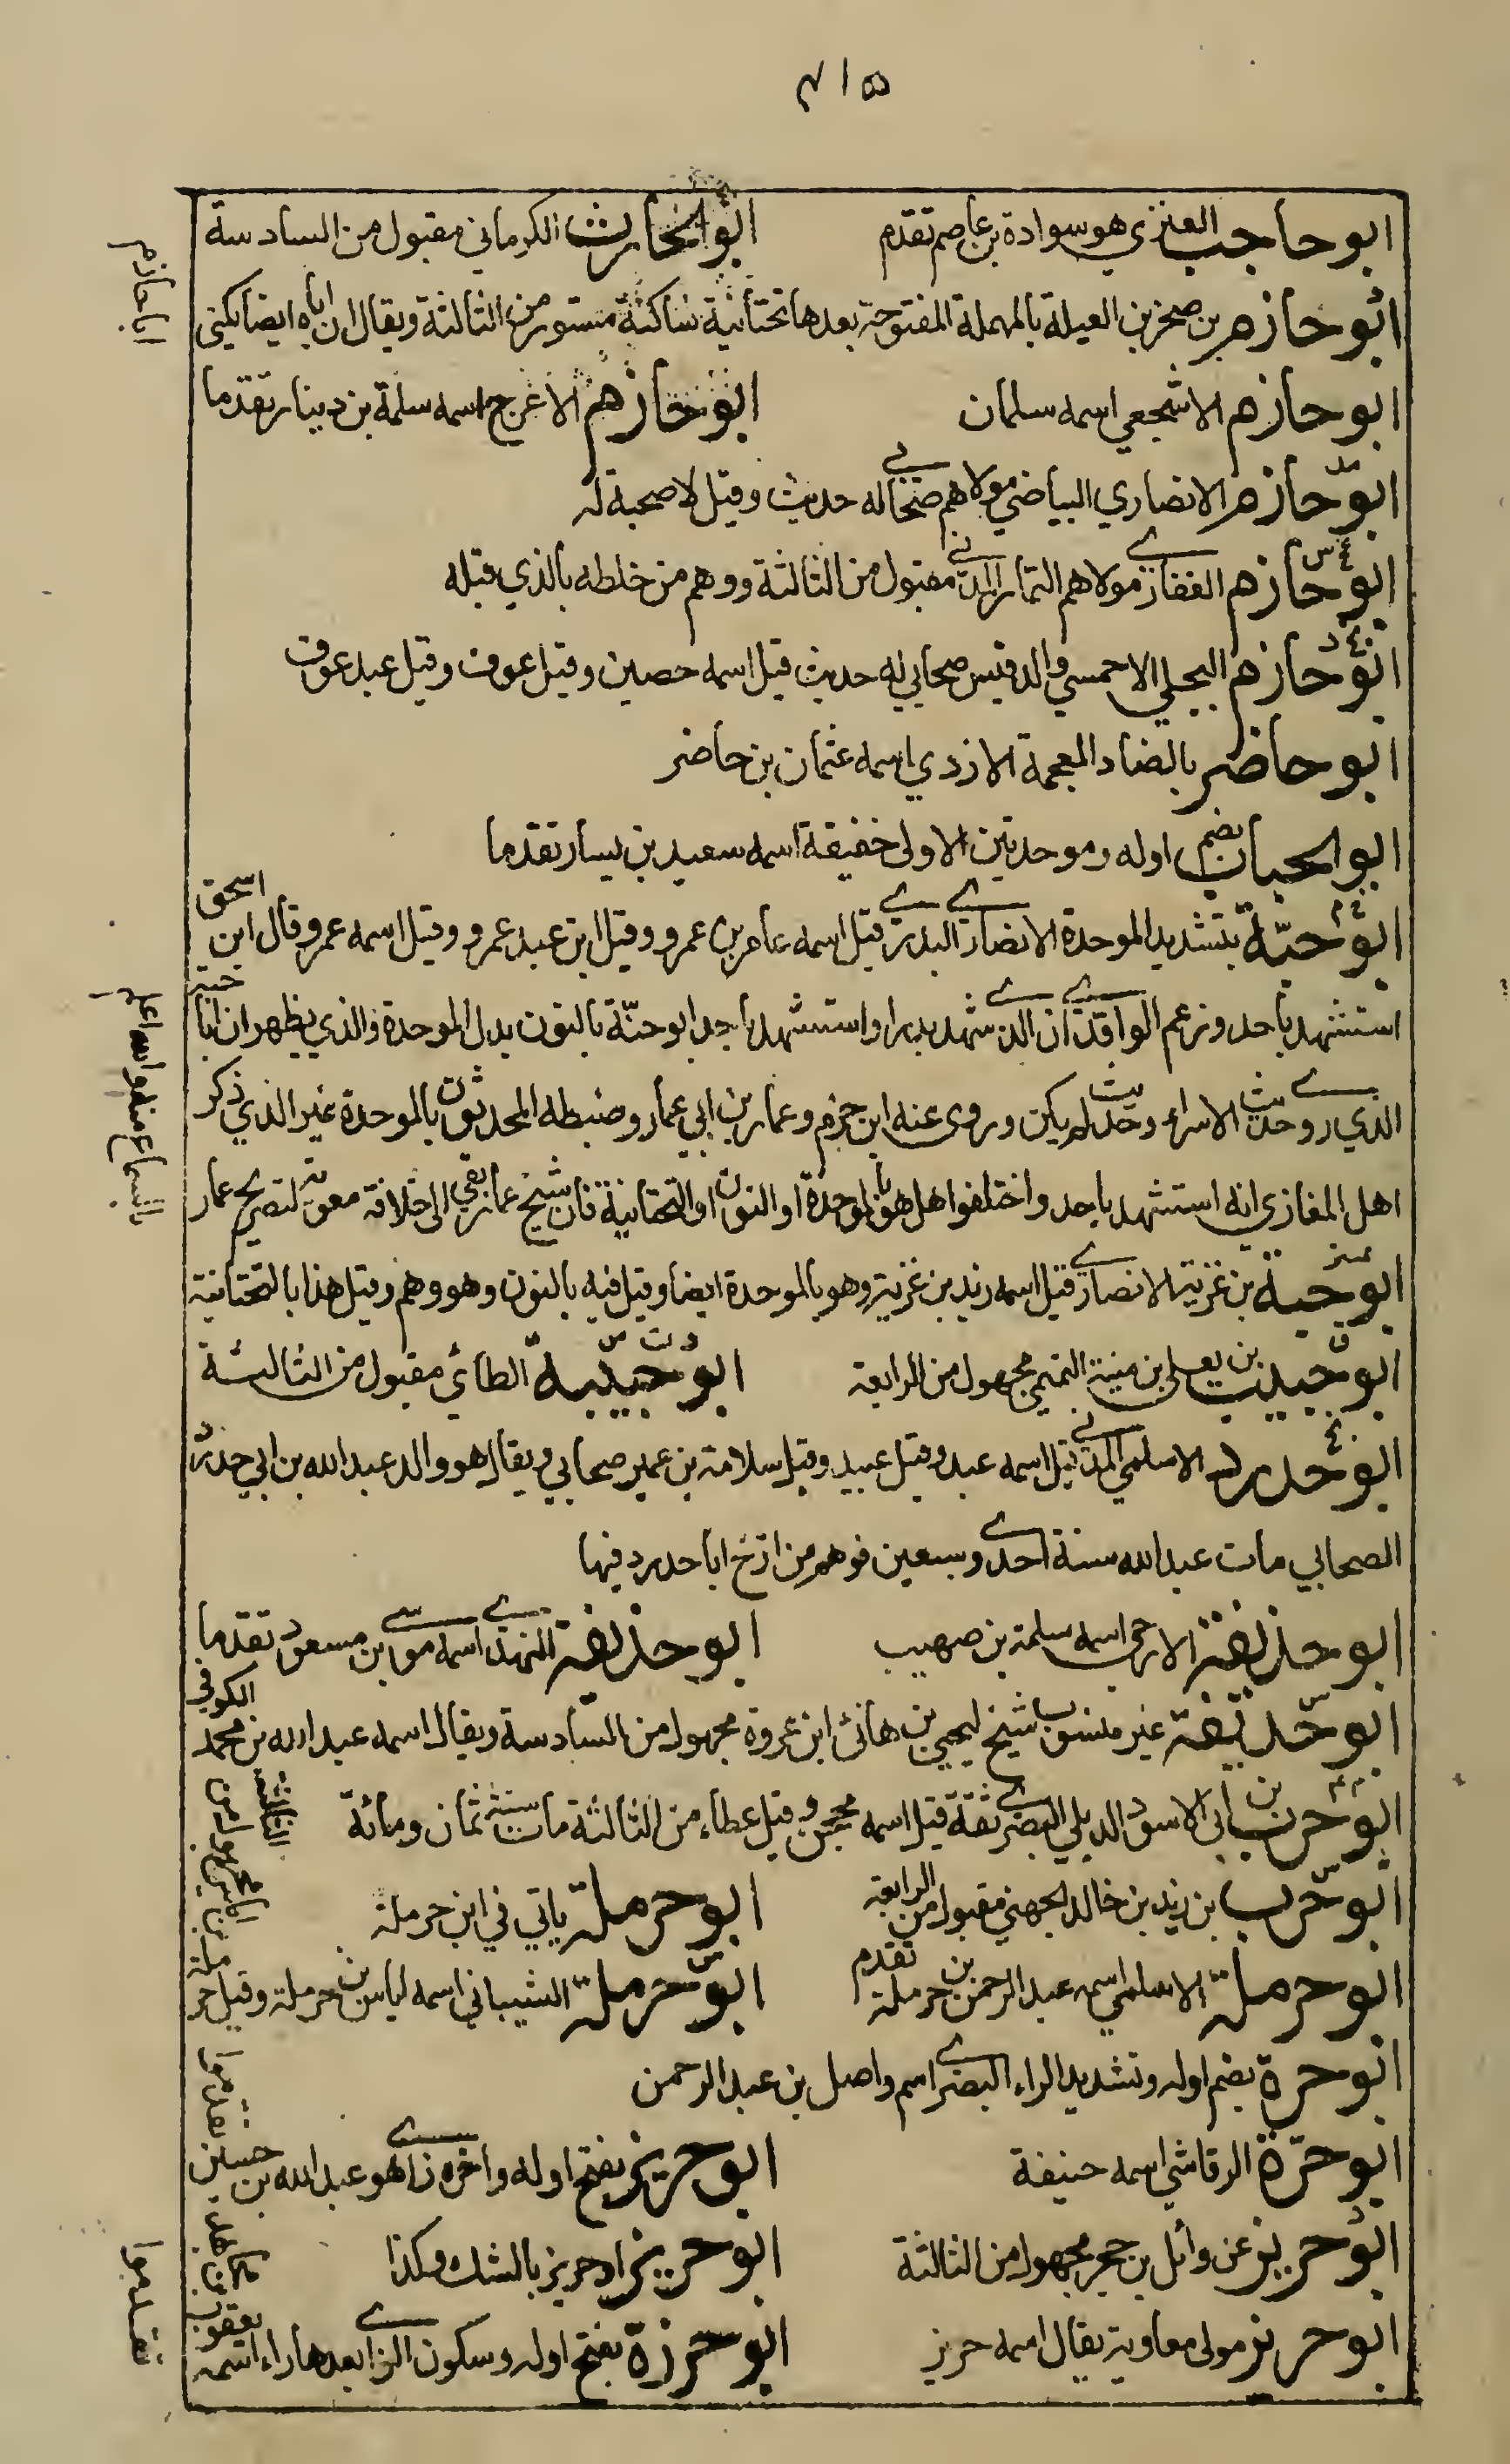 ٤١٥
ابو حاجب العنزي هو سوادة بن عاصم تقدم ابو الحارث الكرماني مقبول من السادسة
ابو حازم بن صخر بن العيلة بالمهملة المفتوحة بعدها تحتانية ساكنة مستور من الثالثة ويقال ان اباه ايضا يكنى
ابا حازم
ابو حازم الاشجعي اسمه سلمان ابو حازم الاعرج اسمه سلمة بن دينار تقدما
ابو حازم الانصاري البياضي مولاهم صحابي له حديث وقيل لا صحبة له
ابو حازم الغفاري مولاهم التمار المدني مقبول من الثالثة ووهم من خلطه بالذي قبله
ابو حازم البجلي الاحمسي والد قيس صحابي له حديث قيل اسمه حصين وقيل عوف وقيل عبد عوف
ابو حاضر بالضاد المعجمة الازدي اسمه عثمان بن حاضر
ابو الحباب بضم اوله وموحدتين الاولى خفيفة اسمه سعيد بن يسار تقدما
ابو حبّة بتشديد الموحدة الانصاري البدري قيل اسمه عامر بن عمرو وقيل ابن عبد عمرو وقيل اسمه عمرو قال ابن اسحق
استشهد باحد وزعم الواقدي ان الذي شهد بدرا واستشهد باحد ابو حنّة بالنون بدل الموحدة والذي يظهر ان ابا حبة
الذي روى حديث الاسراء وحديث لم يكن وروى عنه ابن حزم وعمار بن ابي عمار وضبطه المحدثون بالموحدة غير الذي ذكر
اهل المغازي انه استشهد باحد واختلفوا هل هو بالموحدة او النون او التحتانية فان شيخ عمار بقي الى خلافة معوية لتصريح عمار
بالسماع منه والله اعلم
ابو حبة بن غزية الانصاري قيل اسمه زيد بن غزية وهو بالموحدة ايضا وقيل فيه بالنون وهو وهم وقيل هذا بالتحتانية
ابو حبيب بن يعلى بن منية التميمي مجهول من الرابعة ابو حبيبة الطائي مقبول من الثالثة
ابو حدرد الاسلمي المدني قيل اسمه عبد وقيل عبيد وقيل سلامة بن عمير صحابي ويقال هو والد عبد الله بن ابي حدرد
الصحابي مات عبد الله سنة احدى وسبعين فوهم من ارخ ابا حدرد فيها
ابو حذيفة الارحبي اسمه سلمة بن صهيب ابو حذيفة النهدي اسمه موسى بن مسعود تقدما
ابو حذيفة غير منسوب شيخ ليحيى بن هانئ ابن عروة مجهول من السادسة ويقال اسمه عبد الله بن محمد الكوفي
ابو حرب بن ابي الاسود الديلي البصري ثقة قيل اسمه محجن وقيل عطاء من الثالثة مات سنة ثمان ومائة
ابو حرب بن زيد بن خالد الجهني مقبول من الرابعة ابو حرملة ياتي في ابن حرملة
ابو حرملة الاسلمي اسمه عبد الرحمن بن حرملة تقدم ابو حرملة الشيباني اسمه اياس بن حرملة وقيل حرملة
ابو حرة بضم اوله وتشديد الراء البصري اسم واصل بن عبد الرحمن
ابو حرّة الرقاشي اسمه حنيفة ابو حريز بفتح اوله واخره زاي هو عبد الله بن حسين
تقدموا
ابو حريز عن وائل بن حجر مجهول من الثالثة ابو حريز او حريز بالشك وكذا
ابو حريز مولى معاوية يقال اسمه حريز ابو حزرة بفتح اوله وسكون الزاي بعدها راء اسمه
يعقوب بن مجاهد
تقدموا